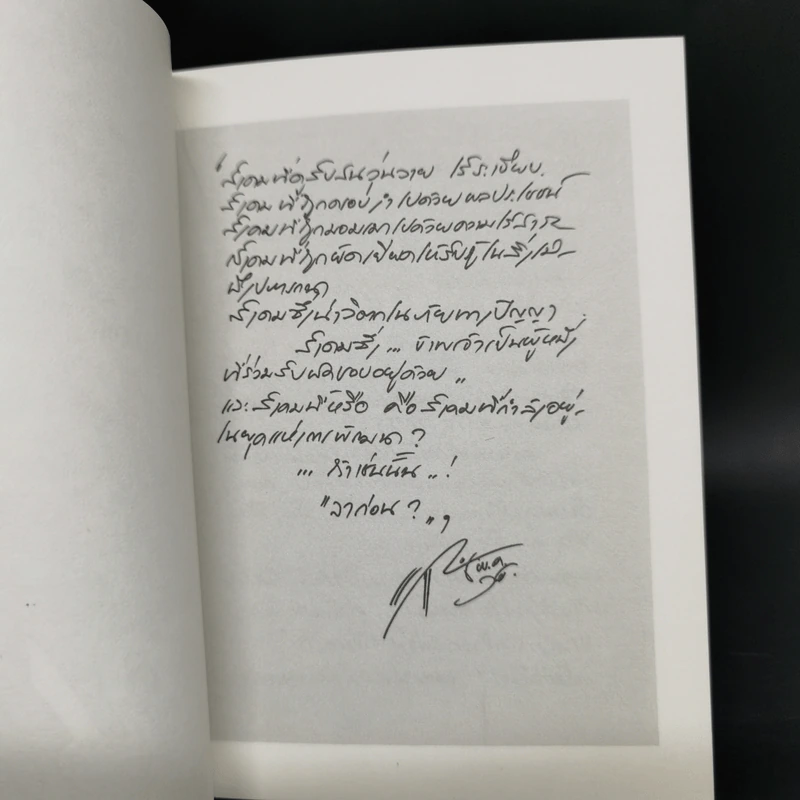 ‘สังคมที่ดูสับสนวุ่นวาย ไร้ระเบียบ
สังคมที่ถูกครอบงำไปด้วยผลประโยชน์
สังคมที่ถูกมอมเมาไปด้วยความไร้สาระ
สังคมที่ถูกยัดเยียดให้รับรู้ในสิ่ง
สังคมซึ่งน่าวิตกในภัยทางปัญญา
สังคมซึ่ง... ข้าพเจ้าเป็นผู้หนึ่ง
ที่ร่วมรับผิดชอบอยู่ด้วย..
และสังคมนี้หรือ คือสังคมที่กำลังอยู่
ในยุคแห่งการพัฒนา?
... ถ้าเช่นนั้น ..!
"ลาก่อน?"